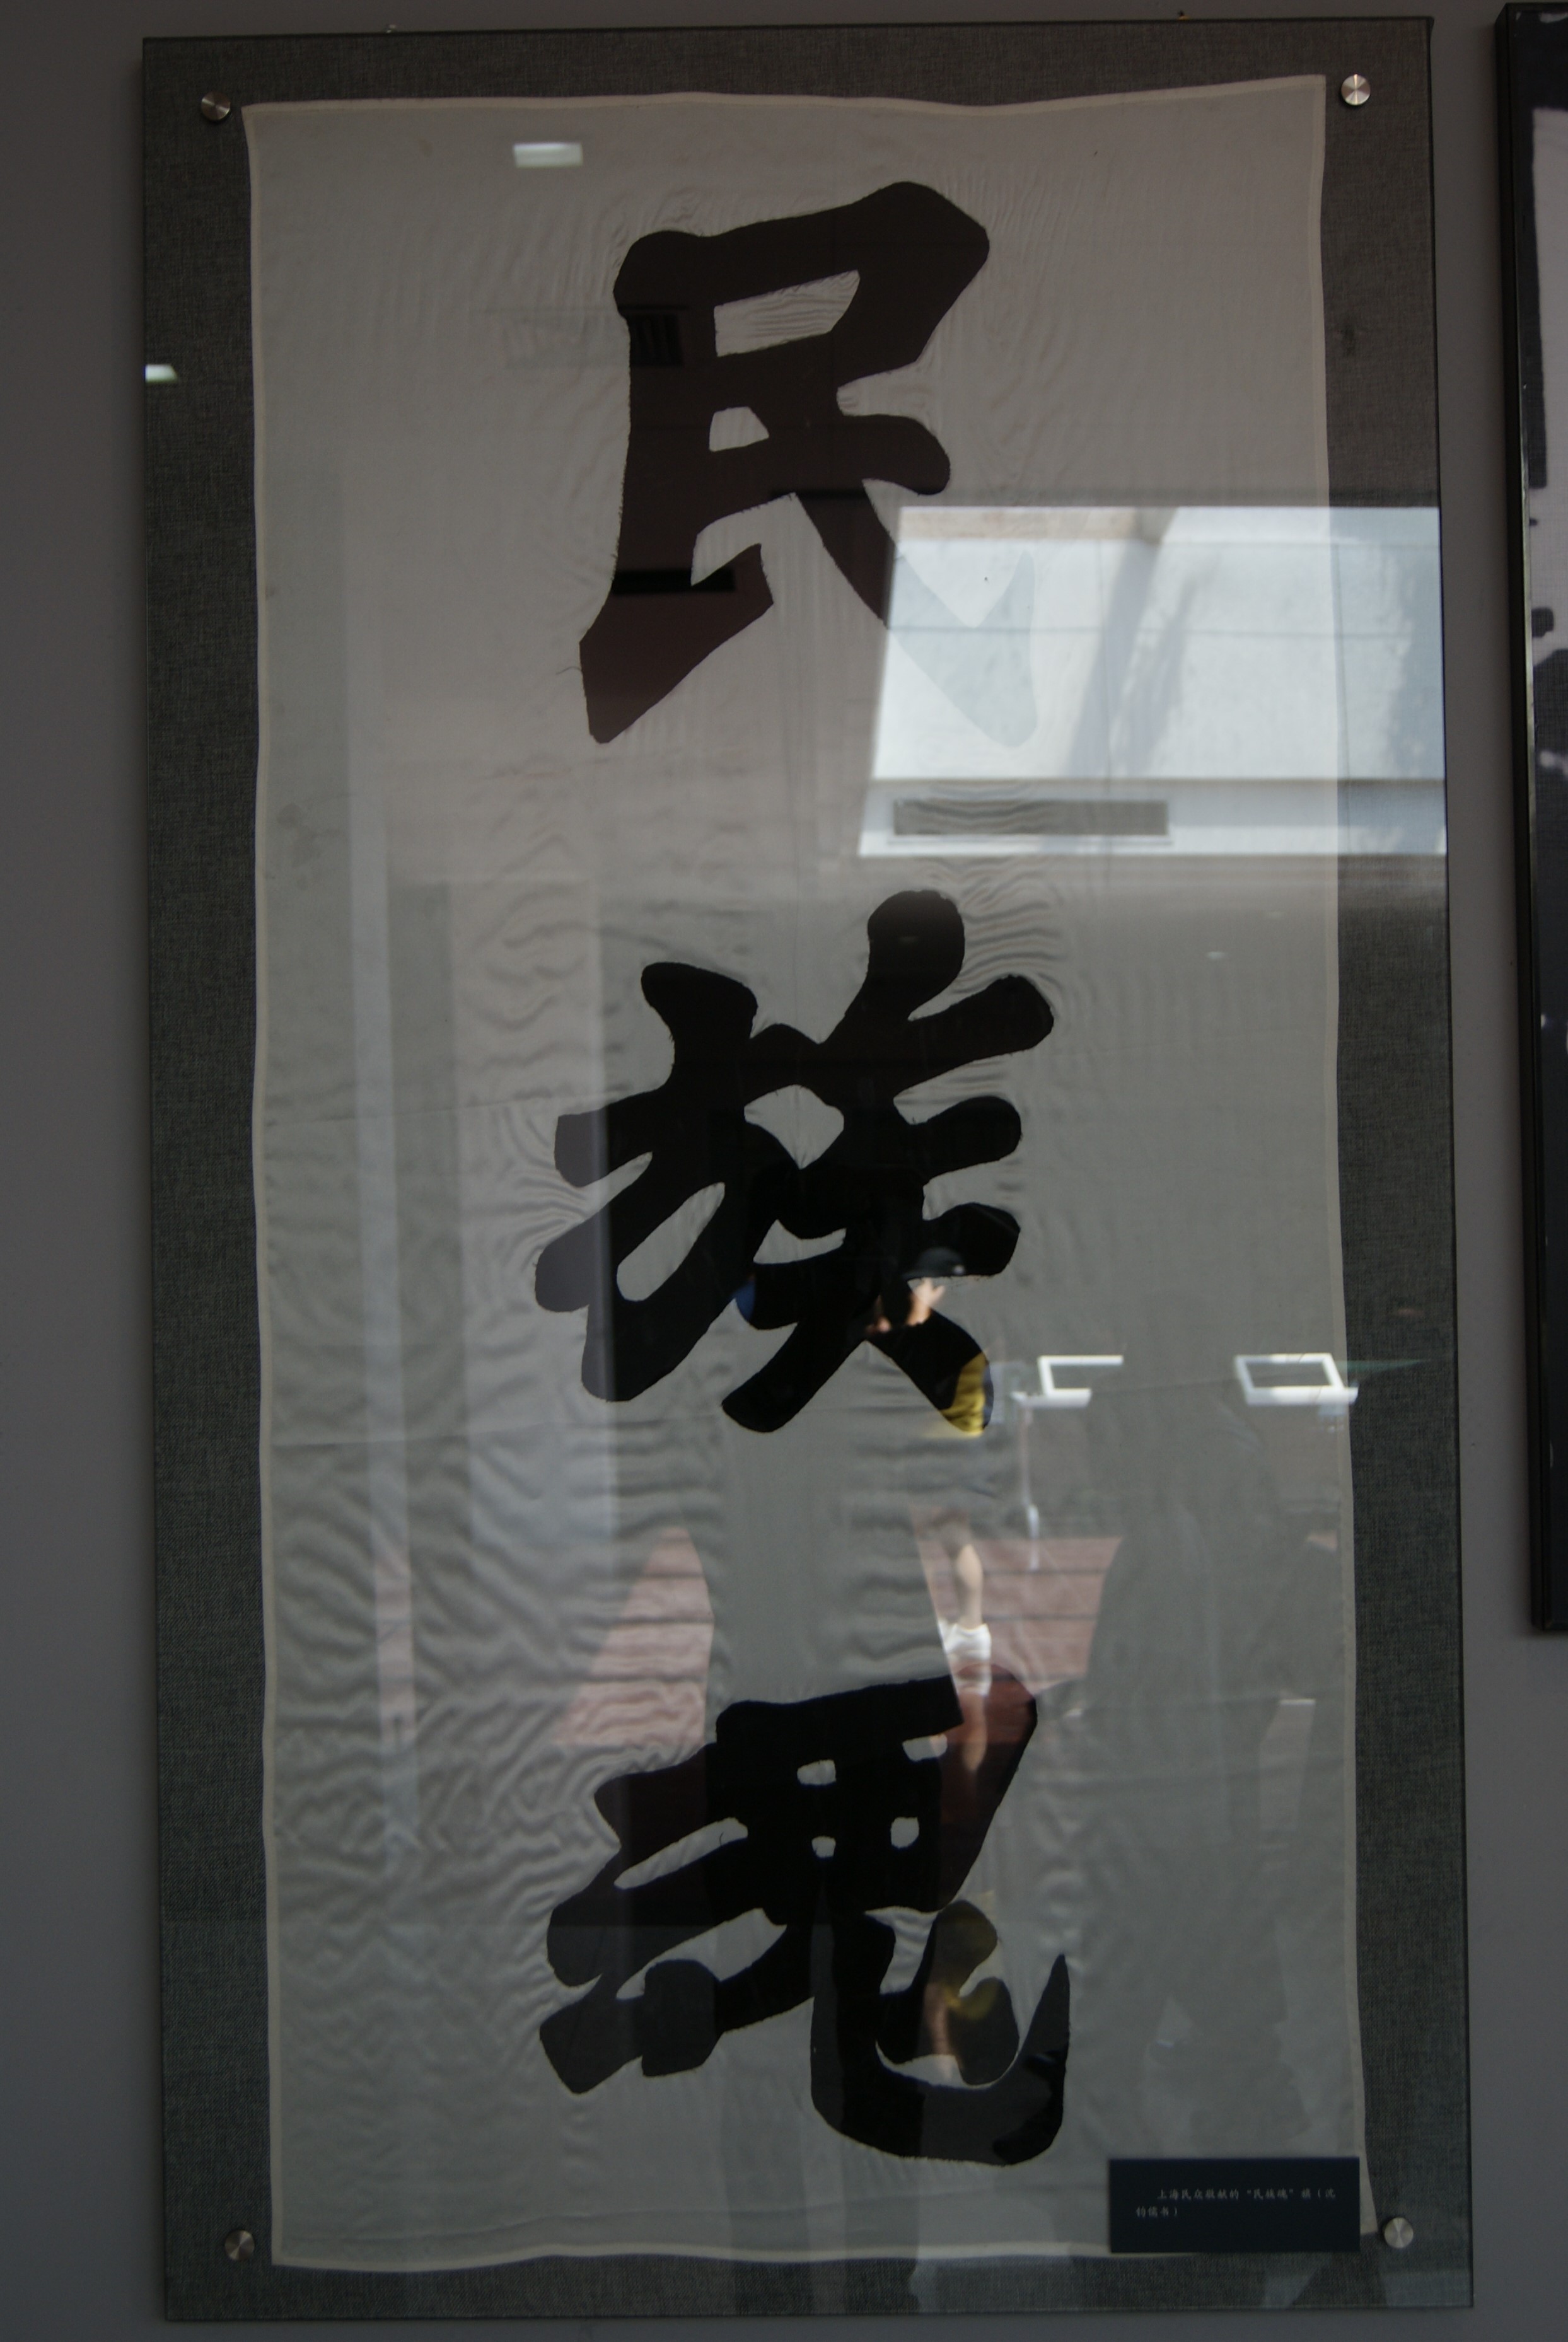 民
族
魂
上海民众敬献的“民族魂”旗（沈
钧儒书）